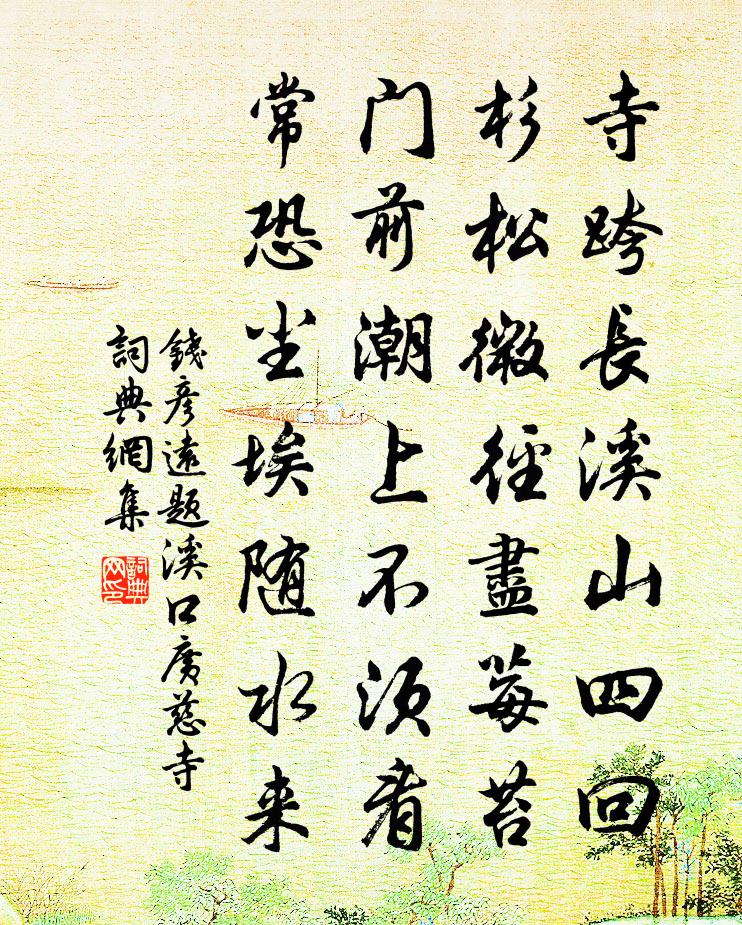 寺跨長溪山四回
杉松微徑盡莓苔
门前潮上不须看
常恐尘埃随水来
錢彦遠题溪口廣慈寺
詞典網集
詞典
网印